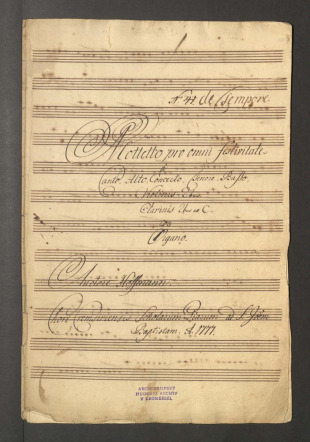 N. 44 de Tempore.
Mottetto pro omni festivitate.
Canto, Alto, Concerto Tenore, Basso.
Violinis
Clarinis in C.
Organo.
Authore Hoffmann.
Chori Piarum ad S. Joan:
Baptistam. A. 1777.
ARCIBISKUPSKÝ
HUDEBNÍ ARCHIV
V KROMĚŘÍŽI